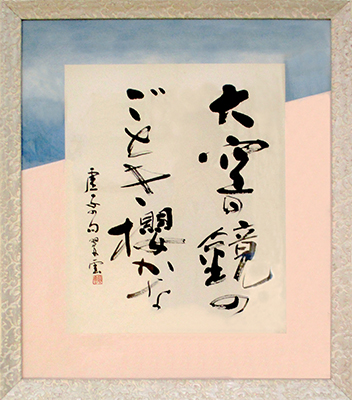 大空の鏡の
ごとき櫻かな
虚子の句 翠雲